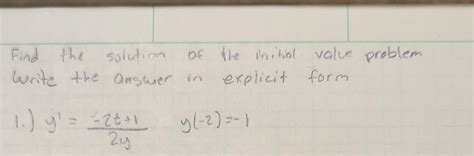 Find the solution of the initial value problem
Write the answer in explicit form
1.) y' = -2t+1 / 2y   y(-2)=-1